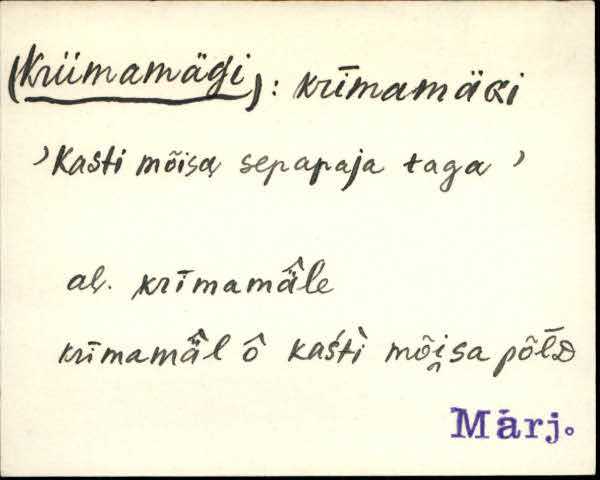 (Kriimamägi): krīmamäɢi
’Kasti mõisa sepapaja taga’
al. krīmamä̂le
krīmamä̂l ô kaśti mõi̯sa põl̄ᴅ
Märj.